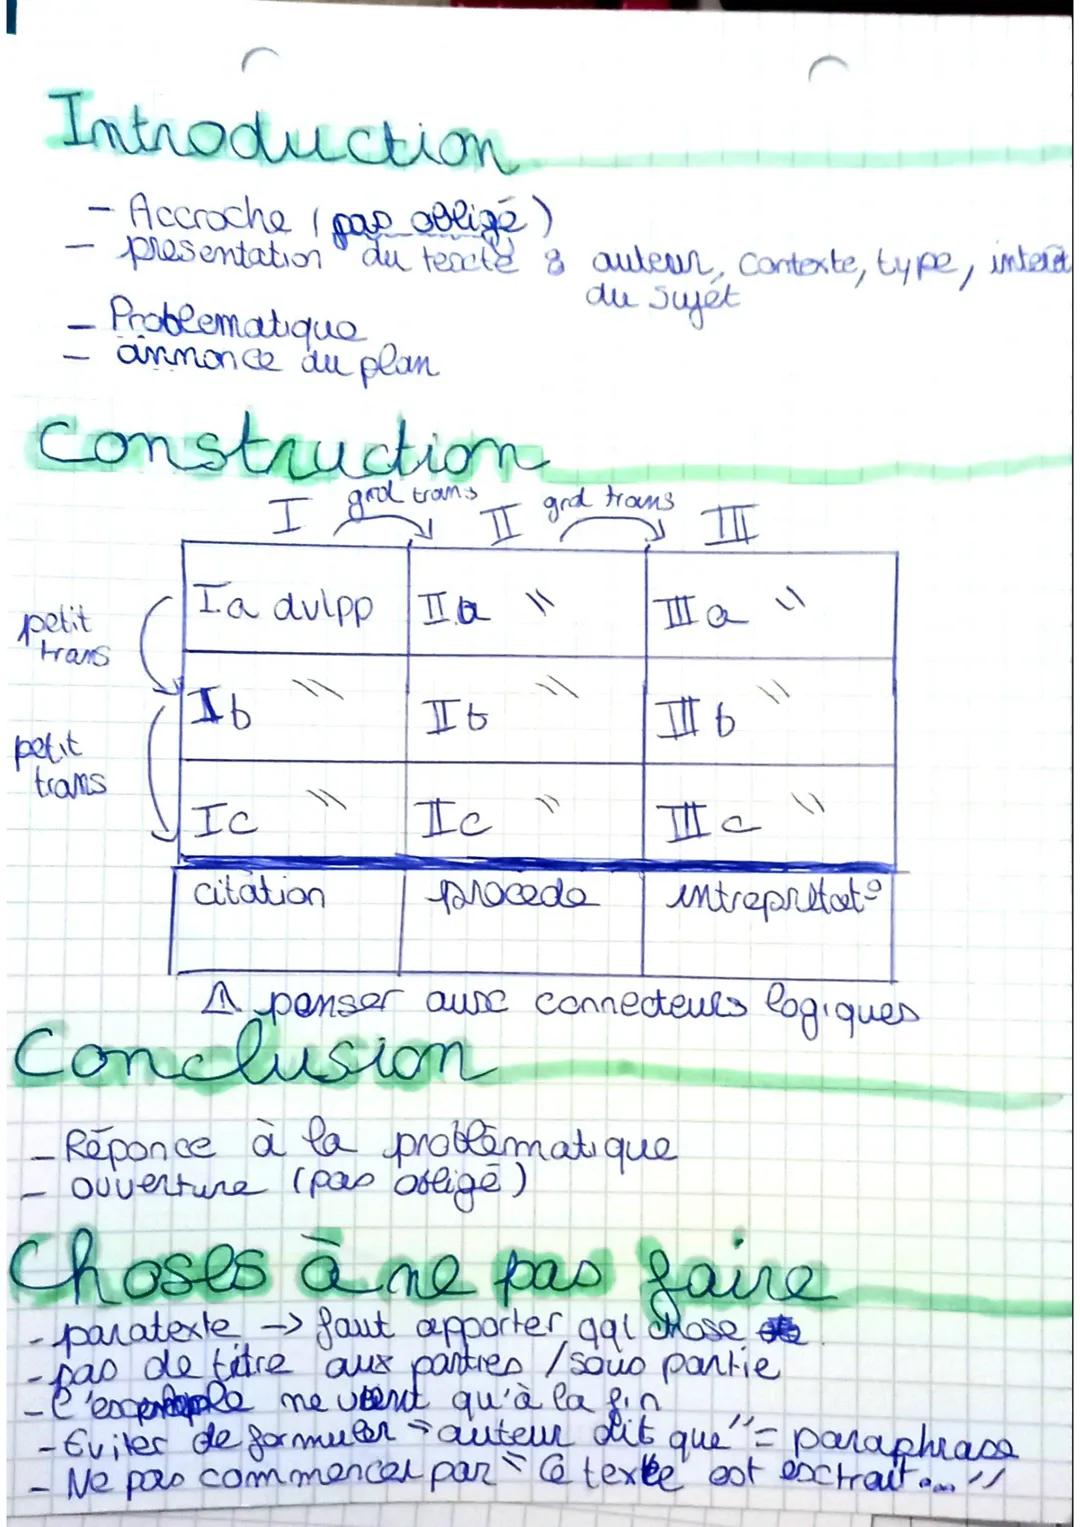 Introduction
- Accroche (pas obligé)
- présentation du texte : auteur, contexte, type, interêt
du sujet
- Problématique
- annonce du plan
Construction
I grd trans II grd trans III
I.a dvlpp II.a " III a "
petit
trans
I b " II b " III b "
petit
trans
I c " II c " III c "
citation procede intrepretat°
⚠ penser aux connecteurs logiques
Conclusion
- Réponce à la problématique
- ouverture (pas obligé)
Choses à ne pas faire
- paratexte -> faut apporter qql chose
- pas de titre aux parties / sous partie
- l'exemple ne vient qu'à la fin
- Eviter de formuler "auteur dit que" = paraphrase
- Ne pas commencer par "Ce texte est extrait..."